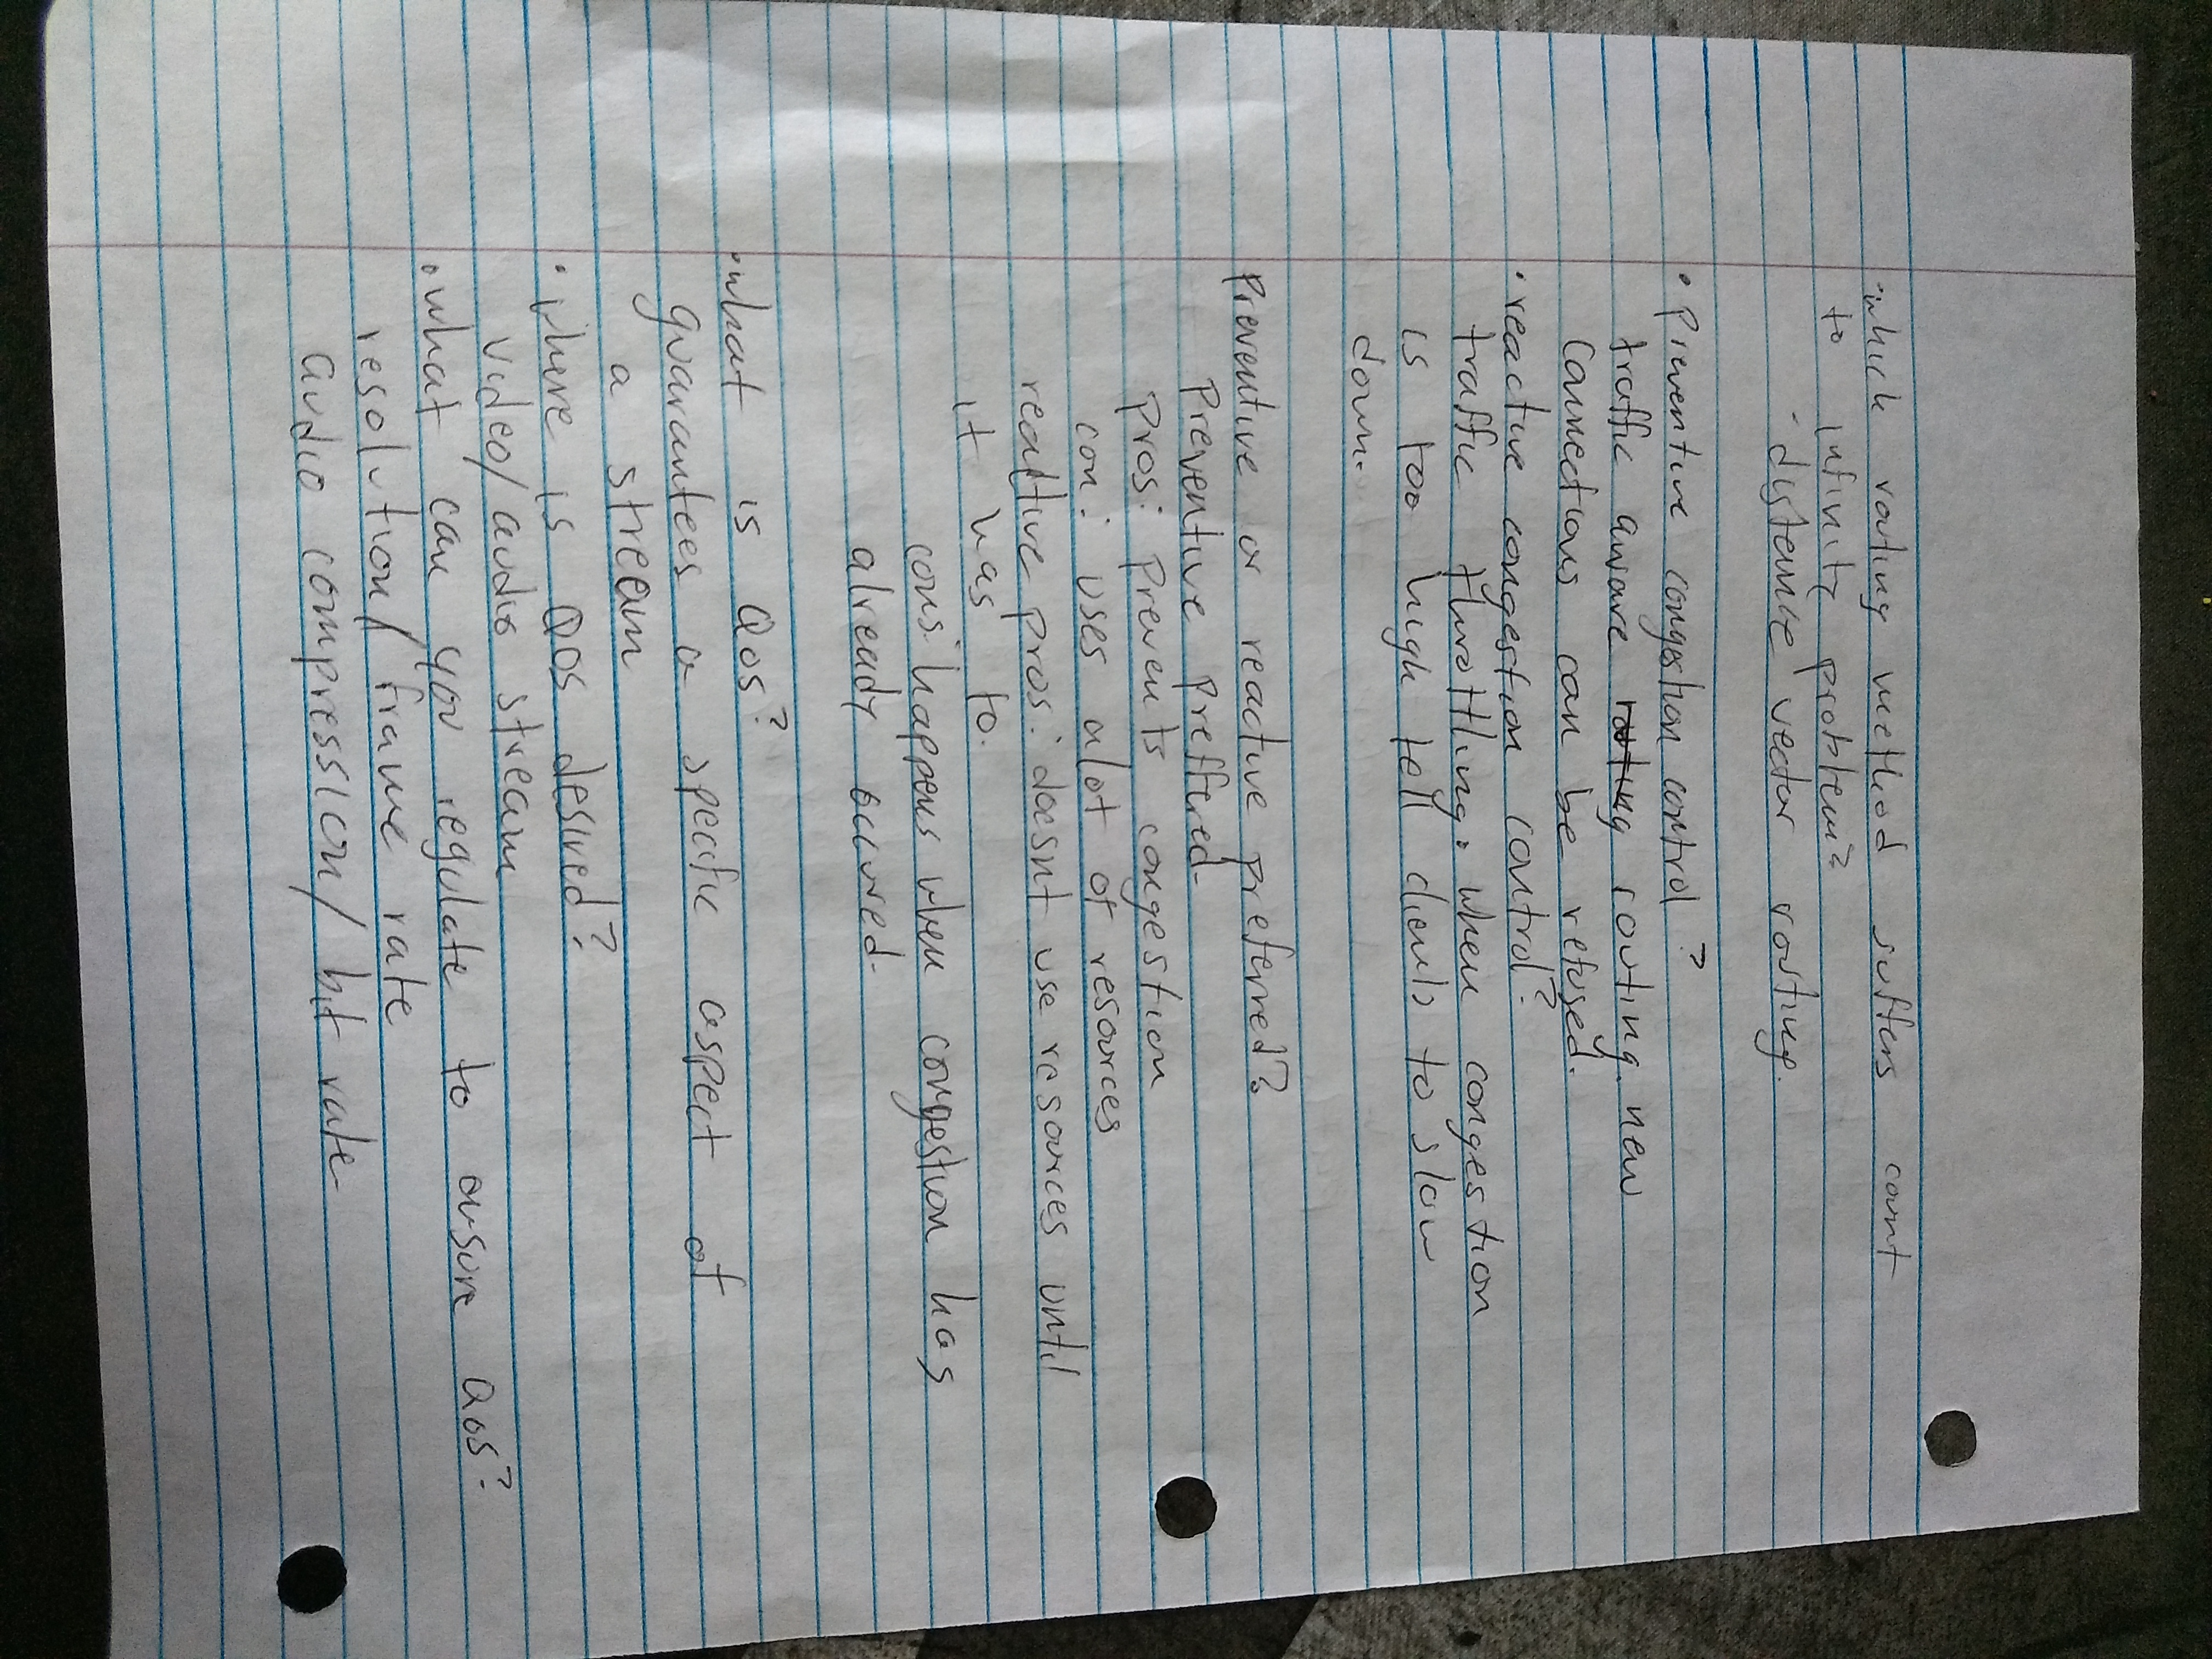 · which routing method suffers count
to infinity problem?
- distance vector routing.
· Preventive congestion control?
traffic aware routing routing. new
connections can be refused.
· reactive congestion control?
traffic throttling. when congestion
is too high tell clients to slow
down.
Preventive or reactive preferred?
Preventive preffered
Pros: prevents congestion
con: uses alot of resources
reactive pros: doesnt use resources until
it has to.
cons: happens when congestion has
already occured.
· what is QoS?
guarantees a specific aspect of
a stream
· where is QOS desired?
video/audio stream
· what can you regulate to ensure QoS?
resolution/frame rate
audio compression/bit rate